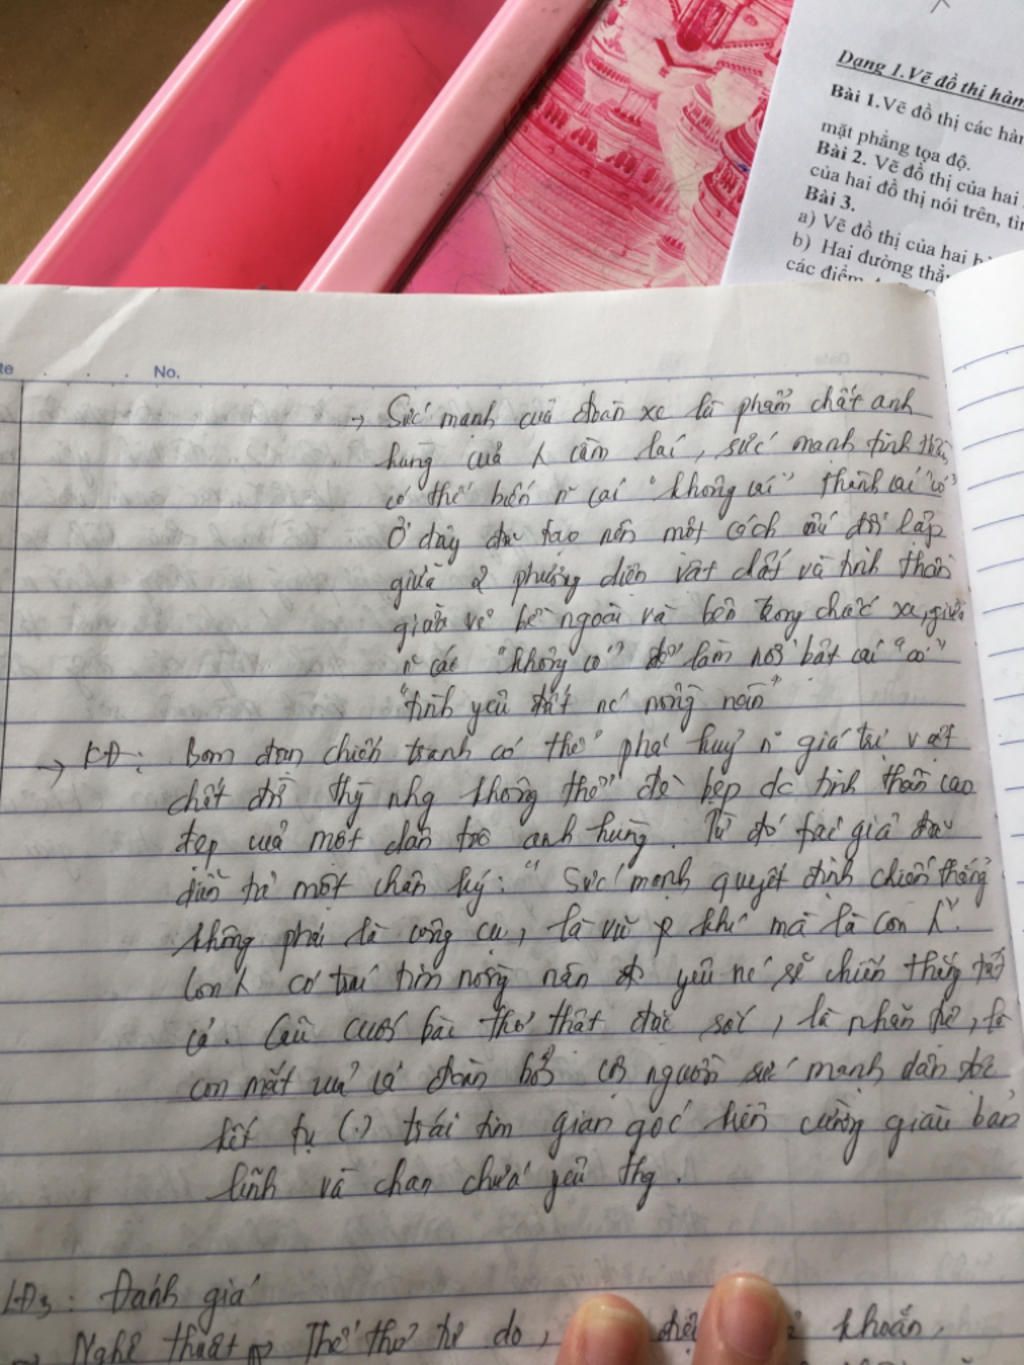 Dạng 1.Vẽ đồ thị hàm
Bài 1.Vẽ đồ thị các hàm
mặt phẳng tọa độ.
Bài 2. Vẽ đồ thị của hai
của hai đồ thị nói trên, tìm
Bài 3.
a) Vẽ đồ thị của hai
b) Hai đường thẳng
các điểm
te No.
→ Sức mạnh của đoàn xe là phẩm chất anh
hùng của λ cầm lái, sức mạnh tinh thần
có thể biến n~ cái "không cái" thành cái "có"
Ở đây đã tạo nên một cách đối lập
giữa 2 phương diện vật chất và tinh thần
giữa vẻ bề ngoài và bên trong chiếc xe, giữa
n~ cái "không có" để làm nổi bật cái "có"
"tình yêu đất nc nồng nàn"
→ KĐ: Bom đạn chiến tranh có thể phá huỷ n~ giá trị vật
chất thy nhg không thể đè bẹp dc tinh thần cao
đẹp của một dân tộc anh hùng. Từ đó tác giả đã
một chân lý: "Sức mạnh quyết định chiến thắng
không phải là công cụ, là vũ khí mà là con λ".
Con λ có trái tim nồng nàn yêu nc sẽ chiến thắng tất
cả. Câu cuối bài thơ thật đặc sắc, là nhãn tự, là
con mắt của cả đoàn cội nguồn sức mạnh dẫn
kết tụ (.) trái tim gan góc kiên cường giàu bản
lĩnh và chan chứa yêu thg.
LĐ3: Đánh giá
→ Nghệ thuật → Thể thơ tự do, khoắn,